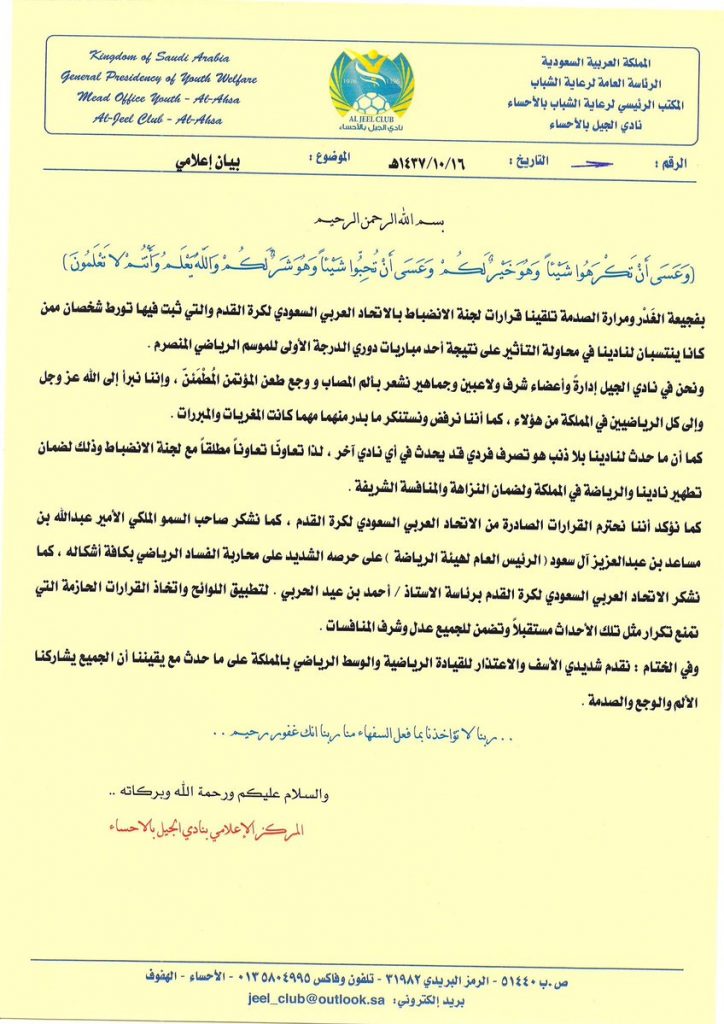 Kingdom of Saudi Arabia
General Presidency of Youth Welfare
Mead Office Youth - Al-Ahsa
Al-Jeel Club - Al-Ahsa
AL JEEL CLUB
نادي الجيل بالأحساء
المملكة العربية السعودية
الرئاسة العامة لرعاية الشباب
المكتب الرئيسي لرعاية الشباب بالأحساء
نادي الجيل بالأحساء
الرقم : التاريخ : ١٤٣٧/١٠/١٦هـ الموضوع : بيان إعلامي
بسم الله الرحمن الرحيم
(وَعَسَى أَنْ تَكْرَهُوا شَيْئاً وَهُوَ خَيْرٌ لَكُمْ وَعَسَى أَنْ تُحِبُّوا شَيْئاً وَهُوَ شَرٌّ لَكُمْ وَاللَّهُ يَعْلَمُ وَأَنْتُمْ لَا تَعْلَمُونَ)
بفجيعة الغَدْر ومرارة الصدمة تلقينا قرارات لجنة الانضباط بالاتحاد العربي السعودي لكرة القدم والتي ثبت فيها تورط شخصان ممن
كانا ينتسبان لنادينا في محاولة التأثير على نتيجة أحد مباريات دوري الدرجة الأولى للموسم الرياضي المنصرم .
ونحن في نادي الجيل إدارةً وأعضاء شرف ولاعبين وجماهير نشعر بألم المصاب و وجع طعن المؤتمن المُطْمَئنّ ، وإننا نبرأ إلى الله عز وجل
وإلى كل الرياضيين في المملكة من هؤلاء ، كما أننا نرفض ونستنكر ما بدر منهما مهما كانت المغريات والمبررات .
كما أن ما حدث لنادينا بلا ذنب هو تصرف فردي قد يحدث في أي نادي آخر ، لذا تعاونّا تعاوناً مطلقاً مع لجنة الانضباط وذلك لضمان
تطهير نادينا والرياضة في المملكة ولضمان النزاهة والمنافسة الشريفة .
كما نؤكد أننا نحترم القرارات الصادرة من الاتحاد العربي السعودي لكرة القدم ، كما نشكر صاحب السمو الملكي الأمير عبدالله بن
مساعد بن عبدالعزيز آل سعود ( الرئيس العام لهيئة الرياضة ) على حرصه الشديد على محاربة الفساد الرياضي بكافة أشكاله ، كما
نشكر الاتحاد العربي السعودي لكرة القدم برئاسة الاستاذ / أحمد بن عيد الحربي . لتطبيق اللوائح واتخاذ القرارات الحازمة التي
تمنع تكرار مثل تلك الأحداث مستقبلاً وتضمن للجميع عدل وشرف المنافسات .
وفي الختام : نقدم شديدي الأسف والاعتذار للقيادة الرياضية والوسط الرياضي بالمملكة على ما حدث مع يقيننا أن الجميع يشاركنا
الألم والوجع والصدمة .
.. ربنا لا تؤاخذنا بما فعل السفهاء منا ربنا انك غفور رحيم ..
والسلام عليكم ورحمة الله وبركاته ..
المركز الإعلامي بنادي الجيل بالاحساء
ص.ب ٥١٤٤٠ - الرمز البريدي ٣١٩٨٢ - تلفون وفاكس ٠١٣٥٨٠٤٩٩٥ - الأحساء - الهفوف
بريد إلكتروني: jeel_club@outlook.sa